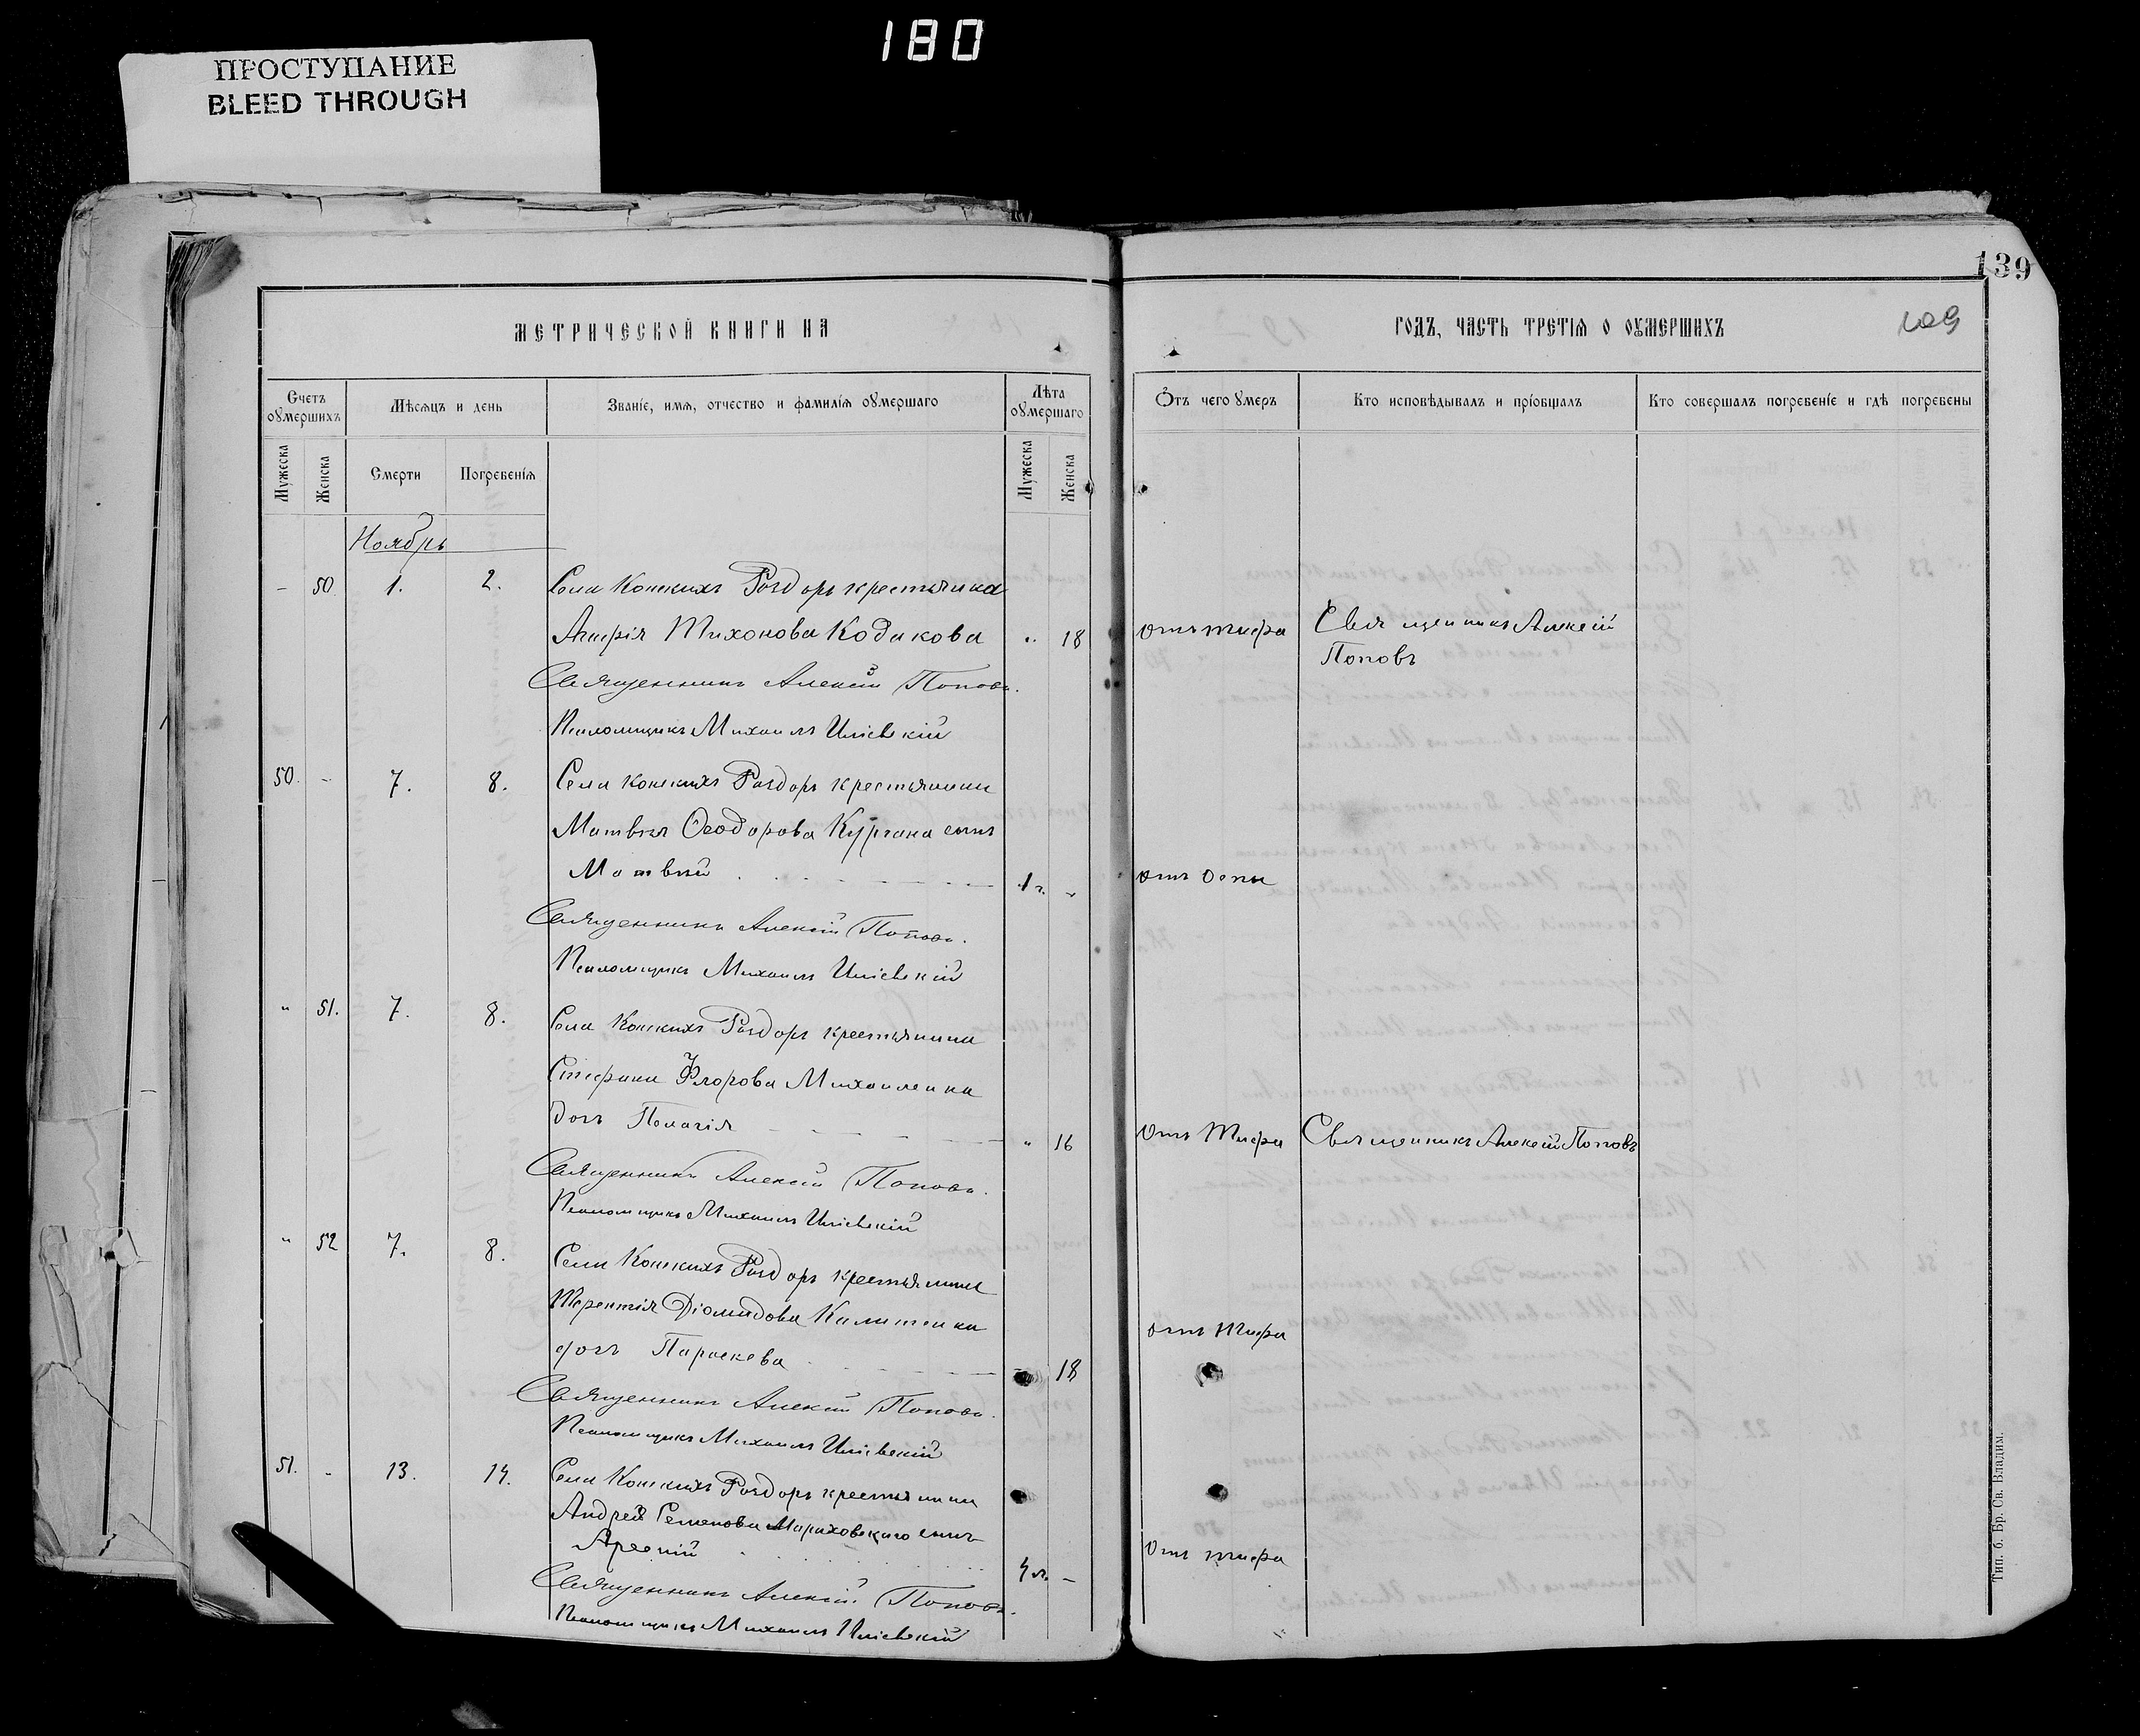 180
ПРОСТУПАНИЕ
BLEED THROUGH
139
МЕТРИЧЕСКОЙ КНИГИ НА
ГОДЪ, ЧАСТЬ ТРЕТІЯ О ОУМЕРШИХЪ
109
Счетъ оумершихъ
Мѣсяцъ и день
Званіе, имя, отчество и фамилія оумершаго
Лѣта оумершаго
Отъ чего оумеръ
Кто исповѣдывалъ и пріобщалъ
Кто совершалъ погребеніе и гдѣ погребены
Мужеска
Женска
Смерти
Погребенія
Мужеска
Женска
Ноябрь
- 50 1. 2. Села Конскихъ Раздоръ крестьянка
Тихонова Кодакова " 18 отъ тифа Священникъ Алексій
Поповъ
Священникъ Алексій Поповъ.
Псаломщикъ Михаилъ Иліевскій
50. - 7. 8. Села Конскихъ Раздоръ крестьянина
Матвѣя Ѳеодорова Кургана сынъ
Матвѣй 1 г. - отъ оспы
Священникъ Алексій Поповъ.
Псаломщикъ Михаилъ Иліевскій
" 51. 7. 8. Села Конскихъ Раздоръ крестьянина
Стефана Флорова Михайленка
дочь Пелагія " 16 Отъ Тифа Священникъ Алексій Поповъ
Священникъ Алексій Поповъ.
Псаломщикъ Михаилъ Иліевскій
" 52 7. 8. Села Конскихъ Раздоръ крестьянина
Терентія Діомидова Калитенка
дочь Параскева 18 отъ тифа
Священникъ Алексій Поповъ.
Псаломщикъ Михаилъ Иліевскій
51. " 13. 14. Села Конскихъ Раздоръ крестьянина
Андрея Семенова Мариховскаго сынъ
Арсеній 4 л. - Отъ тифа
Священникъ Алексій Поповъ.
Псаломщикъ Михаилъ Иліевскій
Тип. б. Бр. Св. Владим.